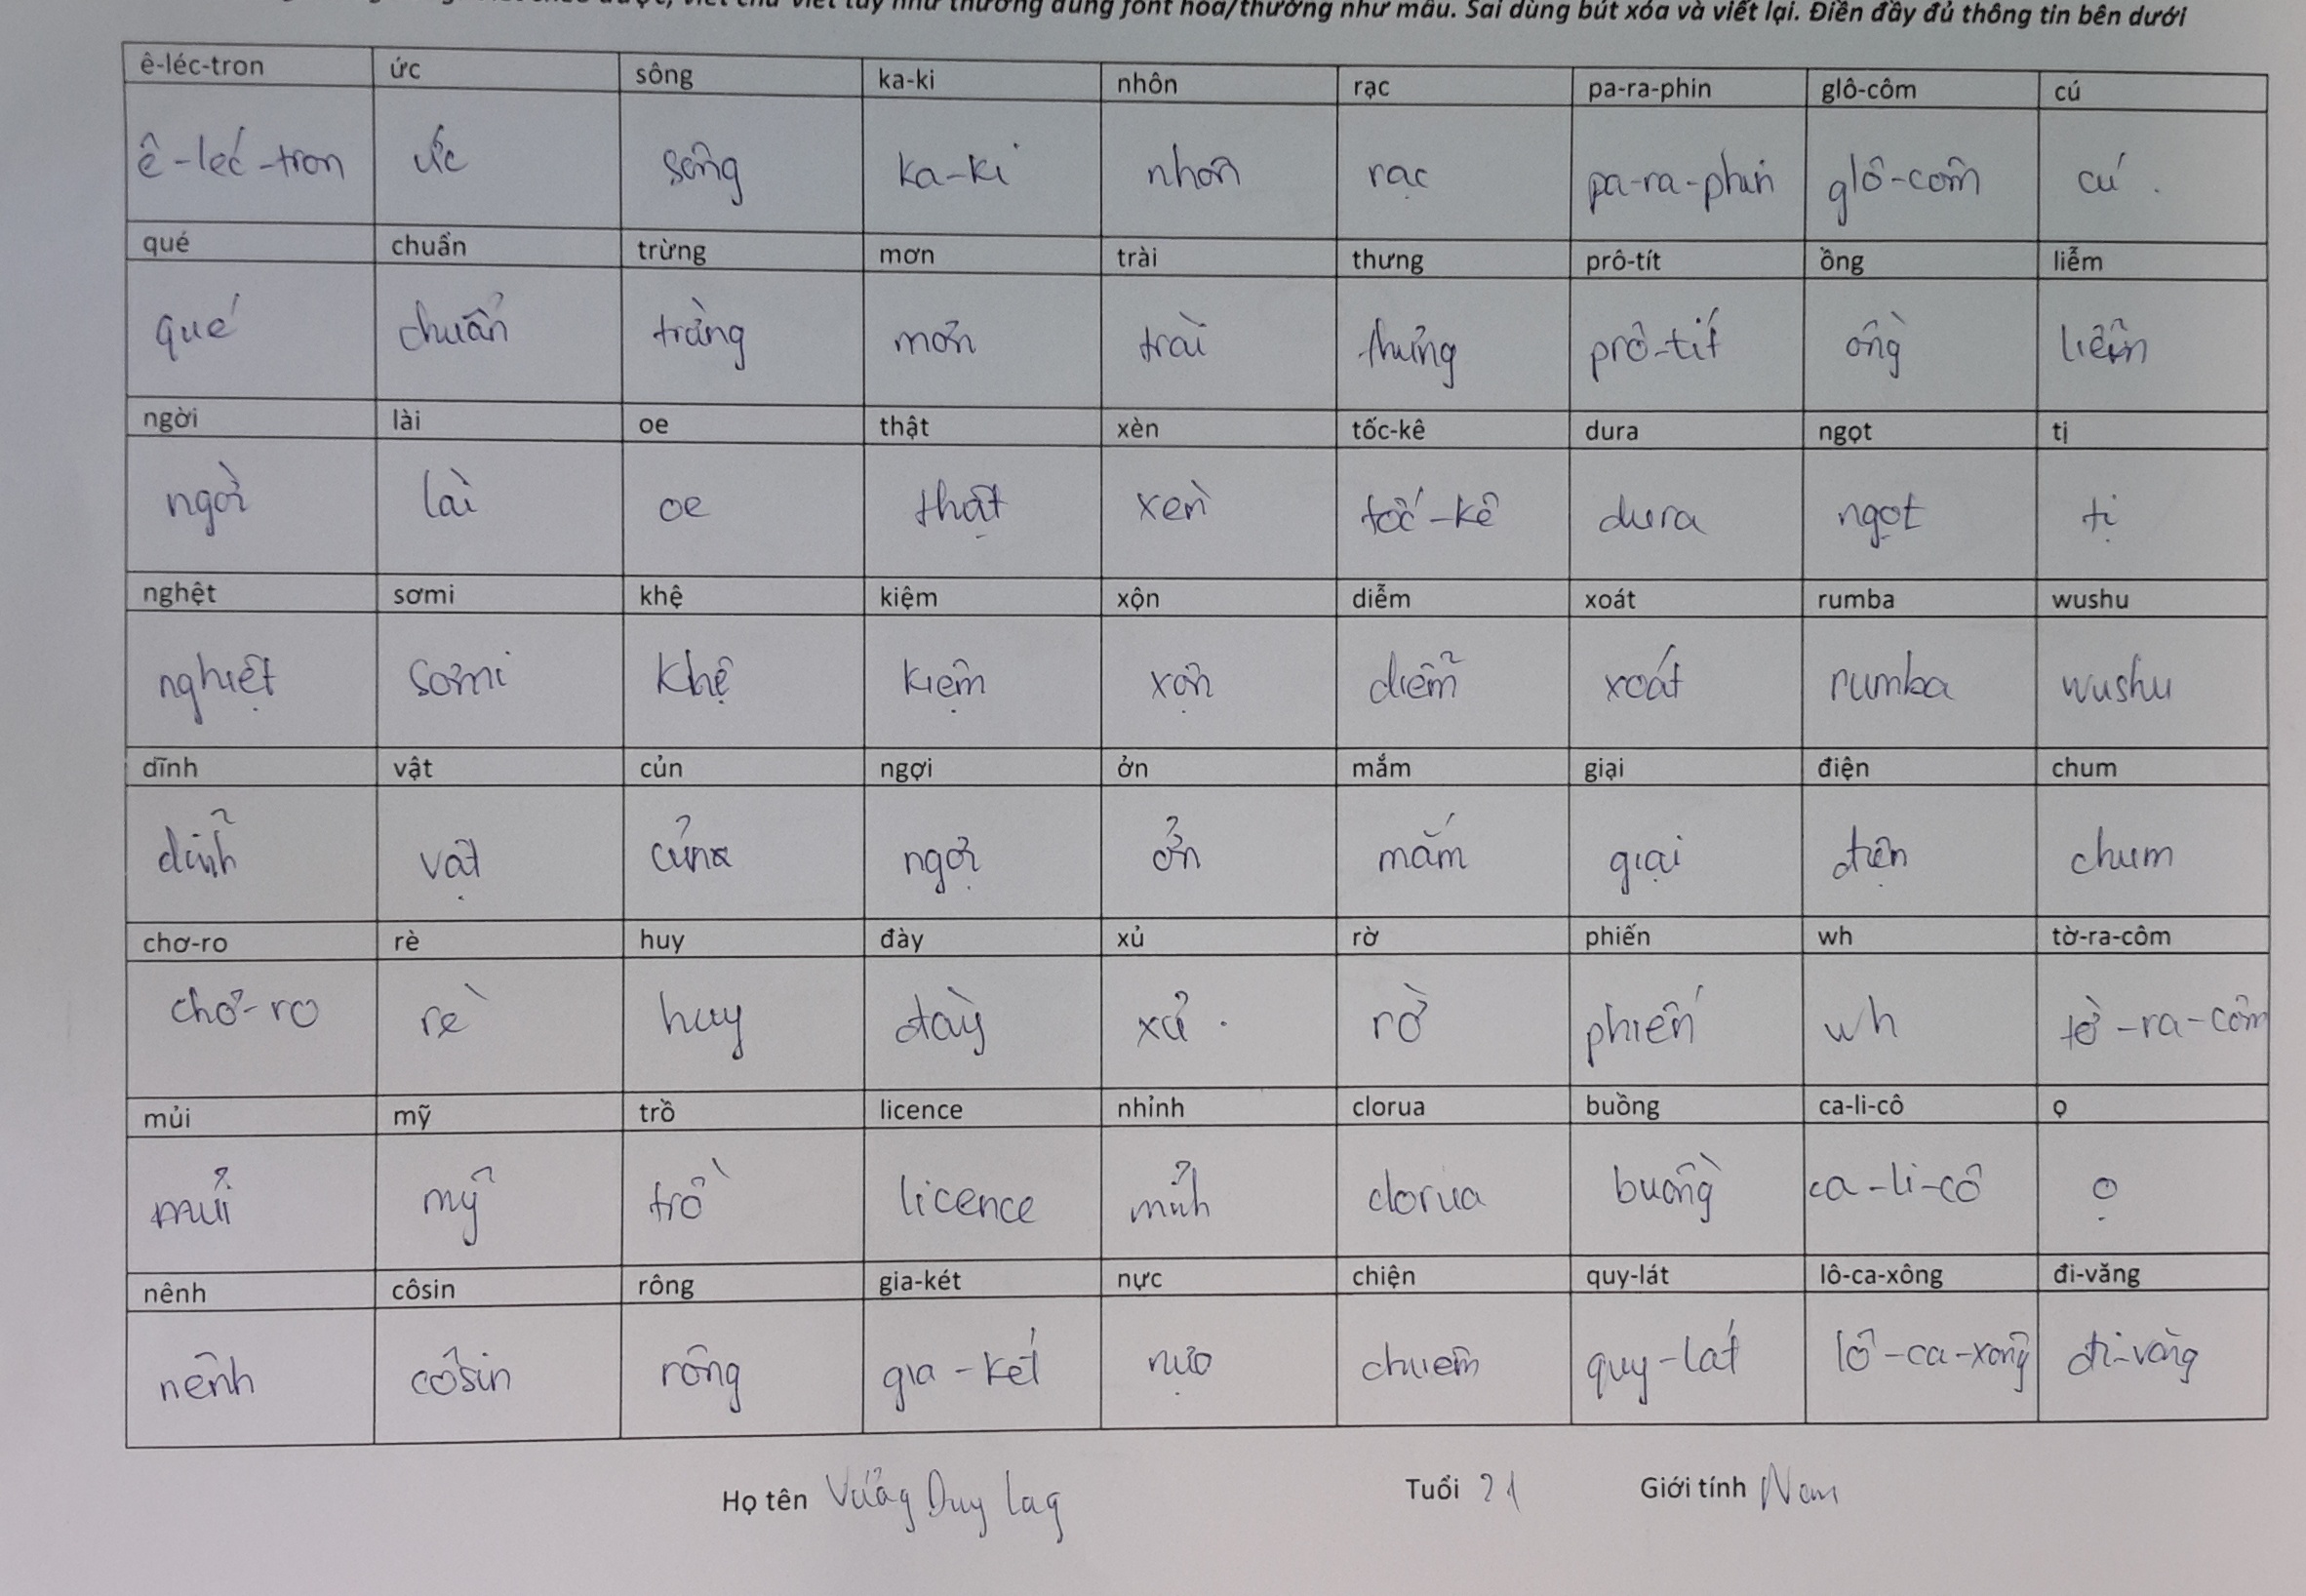 viết chữ viết tay như thường dùng font hoa/thường như mẫu. Sai dùng bút xóa và viết lại. Điền đầy đủ thông tin bên dưới
ê-léc-tron ức sông ka-ki nhôn rạc pa-ra-phin glô-côm cú
ê-léc-tron ức sông ka-ki nhôn rạc pa-ra-phin glô-côm cú.
qué chuẩn trừng mơn trài thưng prô-tít ồng liễm
qué chuẩn trừng mơn trài thưng prô-tít ồng liễm
ngời lài oe thật xèn tốc-kê dura ngọt tị
ngời lài oe thật xèn tốc-kê dura ngọt tị
nghệt sơmi khệ kiệm xộn diễm xoát rumba wushu
nghiệt sơmi khệ kiệm xộn diễm xoát rumba wushu
dĩnh vật củn ngợi ởn mắm giại điện chum
dĩnh vật củn ngợi ởn mắm giại điện chum
chơ-ro rè huy đày xủ rờ phiến wh tờ-ra-côm
chơ-ro rè huy đày xủ. rờ phiến wh tờ-ra-côm
mủi mỹ trồ licence nhỉnh clorua buồng ca-li-cô ọ
mủi mỹ trồ licence nhỉnh clorua buồng ca-li-cô ọ
nênh côsin rông gia-két nực chiện quy-lát lô-ca-xông đi-văng
nênh côsin rông gia-két nực quy-lát lô-ca-xông đi-văng
Họ tên Vương Duy Tuổi 21 Giới tính Nam